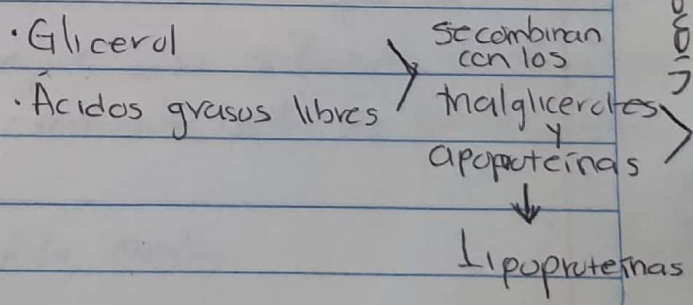 · Glicerol
· Ácidos grasos libres
se combinan
con los
trialgliceroles
y
apoproteínas
Lipoproteínas